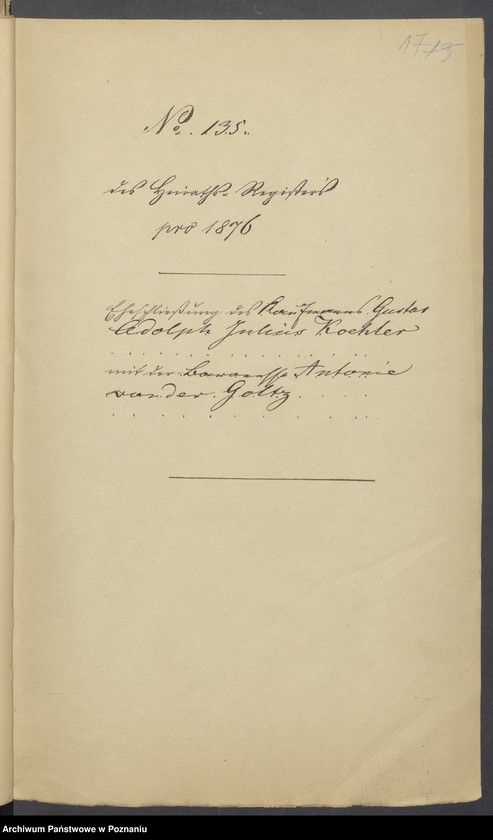 No. 135.
des Heiraths-Registers
pro 1876
Eheschließung des Kaufmanns Gustav
Adolph Julius Koehler
mit der Baronesse Antonie
von der Goltz
Archiwum Państwowe w Poznaniu